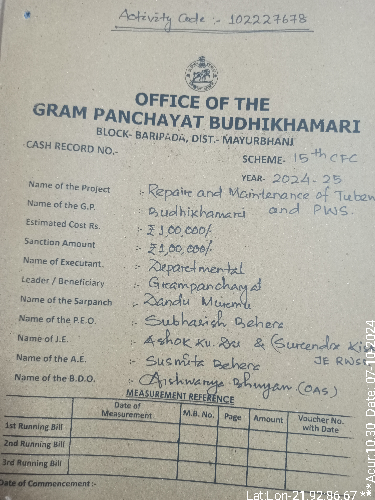 Activity Code :- 102227678
OFFICE OF THE
GRAM PANCHAYAT BUDHIKHAMARI
BLOCK- BARIPADA, DIST.- MAYURBHANJ
CASH RECORD NO.-
SCHEME- 15th CFC
YEAR- 2024-25
Name of the Project :- Repair and Maintenance of Tubew
Name of the G.P. :- Budhikhamari and PWS.
Estimated Cost Rs. :- ₹1,00,000/-
Sanction Amount :- ₹1,00,000/-
Name of Executant. :- Departmental
Leader / Beneficiary :- Grampanchayat
Name of the Sarpanch :- Dandu Murmu
Name of the P.E.O. :- Subhasish Behera
Name of J.E. :- Ashok Ku. & (Surendra
JE RWSS
Name of the A.E. :- Susmita Behera
Name of the B.D.O. :- Aishwarya Bhuyan (OAS)
MEASUREMENT REFERENCE
Date of Measurement M.B. No. Page Amount Voucher No. with Date
1st Running Bill
2nd Running Bill
3rd Running Bill
Date of Commencement :-
Lat Lon-21.92:86.67
***Acur:10.30 Date, 07-10-2024